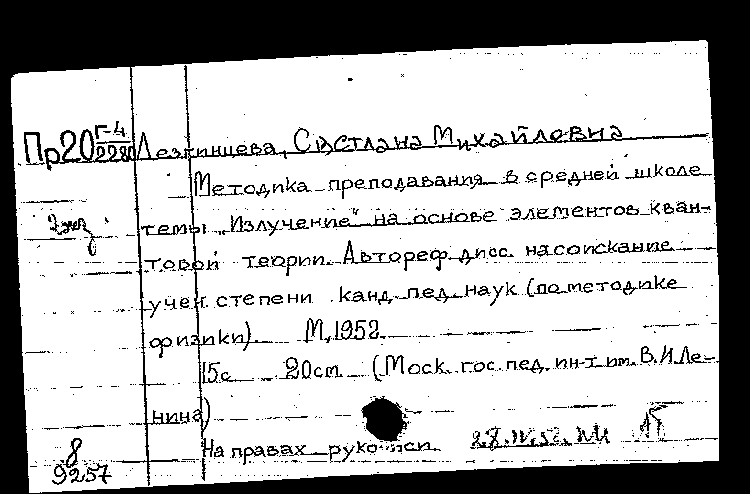 Пр20 Г-4
2280
Лезгинцева, Светлана Михайловна
Методика преподавания в средней школе
2 экз
темы „Излучение" на основе элементов кван-
товой теории. Автореф. дисс. на соискание
учен. степени канд. пед. наук (по методике
физики). М, 1952.
15с 20см (Моск. гос. пед. ин-т им. В.И Ле-
нина)
На правах рукописи
8
9257